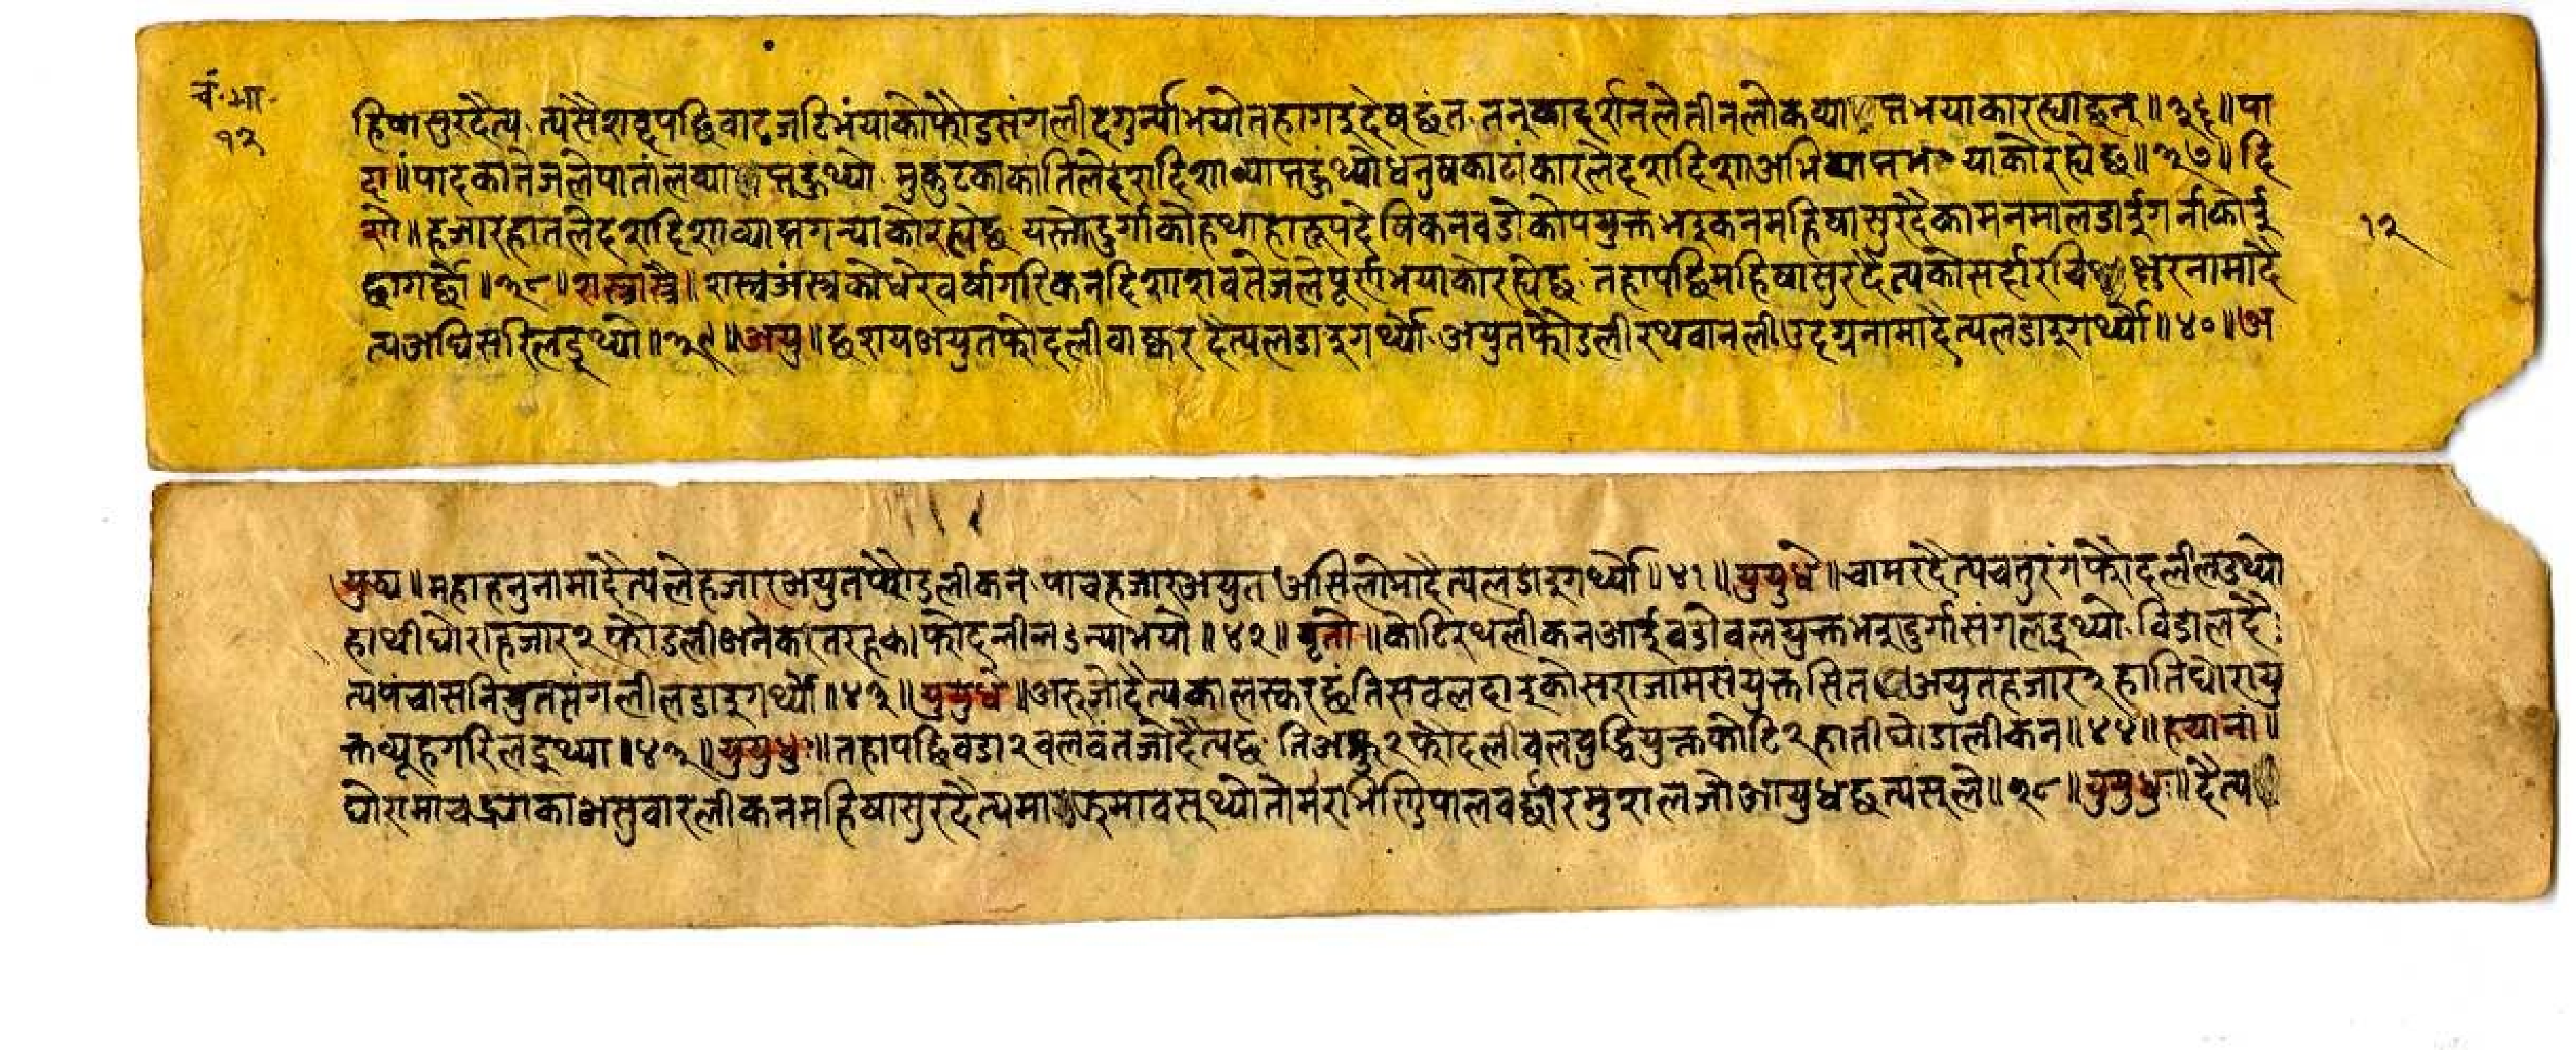 चं.भा.
१२
हिषासुरदैत्य त्यसै शवृपछि वाट जटिभंयाको फौडसंगली दगुर्न्याभयो तहागइ देषछंत तनुका दर्शनले तीनलोक व्याप्तभयाकारह्याछन् ॥३६॥ पा
दा॥ पादकातेजले पाताल व्याप्तहुंथ्यो मुकुटकाकांतिले दशदिशाव्याप्तहुंथ्यो धनुषकाटांकारले दशदिशा अभिव्याप्तभयाकोरह्येछ॥३७॥ दि
शो॥ हजारहातले दशदिशाव्याप्तगन्याकोरह्येछ यस्तो दुर्गाको हथाहारूप देषिकन वडो कोपयुक्तभइकन महिषासुरदैकामनमा लडाईगर्नाको ई
छागर्छो॥३८॥ शस्त्रास्त्रै॥ शस्त्रअंस्त्रको धेरै वर्षागरिकन दिशाशवतेजले पूर्णभयाकोरह्येछ तहापछि महिषासुरदैत्यको सर्दार चिक्षुरनामादै
त्य अघिसरि लड्थ्यो॥३९॥ अयु॥ छशय अयुतफौदली वाष्कर दैत्य लडाइगर्थ्यो अयुतफौडली रथवानली उदृग्रनामादैत्य लडाइगर्थ्यो॥४०॥ अ
१२
युध्य॥ महाहनुनामादैत्यले हजारअयुतफौडलीकन पाचहजारअयुत असिलोमादैत्य लडाइगर्थ्यो॥४१॥ युयुधे॥ चामरदैत्य चतुरंगफौदली लडथ्यो
हाथीघोराहजार२ फौडली अनेकातरहका फौदली लडन्याभयो॥४२॥ वृतो॥ कोटिरथलीकन आई वडोवलयुक्तभइ दुर्गासंग लड्थ्यो विडालदै
त्य पंचासनियुतसंगली लडाइगर्थ्यो॥४३॥ युयुधे॥ अरुजोदैत्य कालस्करछ तिसवलदाइको सराजामसंयुक्तसित अयुतहजार२ हातिघोरायु
क्तव्यूहगरि लड्थ्या॥४३॥ युयुधुः॥ तहापछि वडा२ वलवंतजोदैत्यछ ति अरु२ फौदली वलवुद्धियुक्त कोटि२ हातीघोडालीकन॥४४॥ हयानां॥
घोरामाचढ्याका असुवारलीकन महिषासुरदैत्य माझमा वस्थ्यो तोमरा भिंत्तिपाल वर्छा र मुशल जो आयुधछ त्यसले॥२८॥ युयुधुः॥ दैत्य